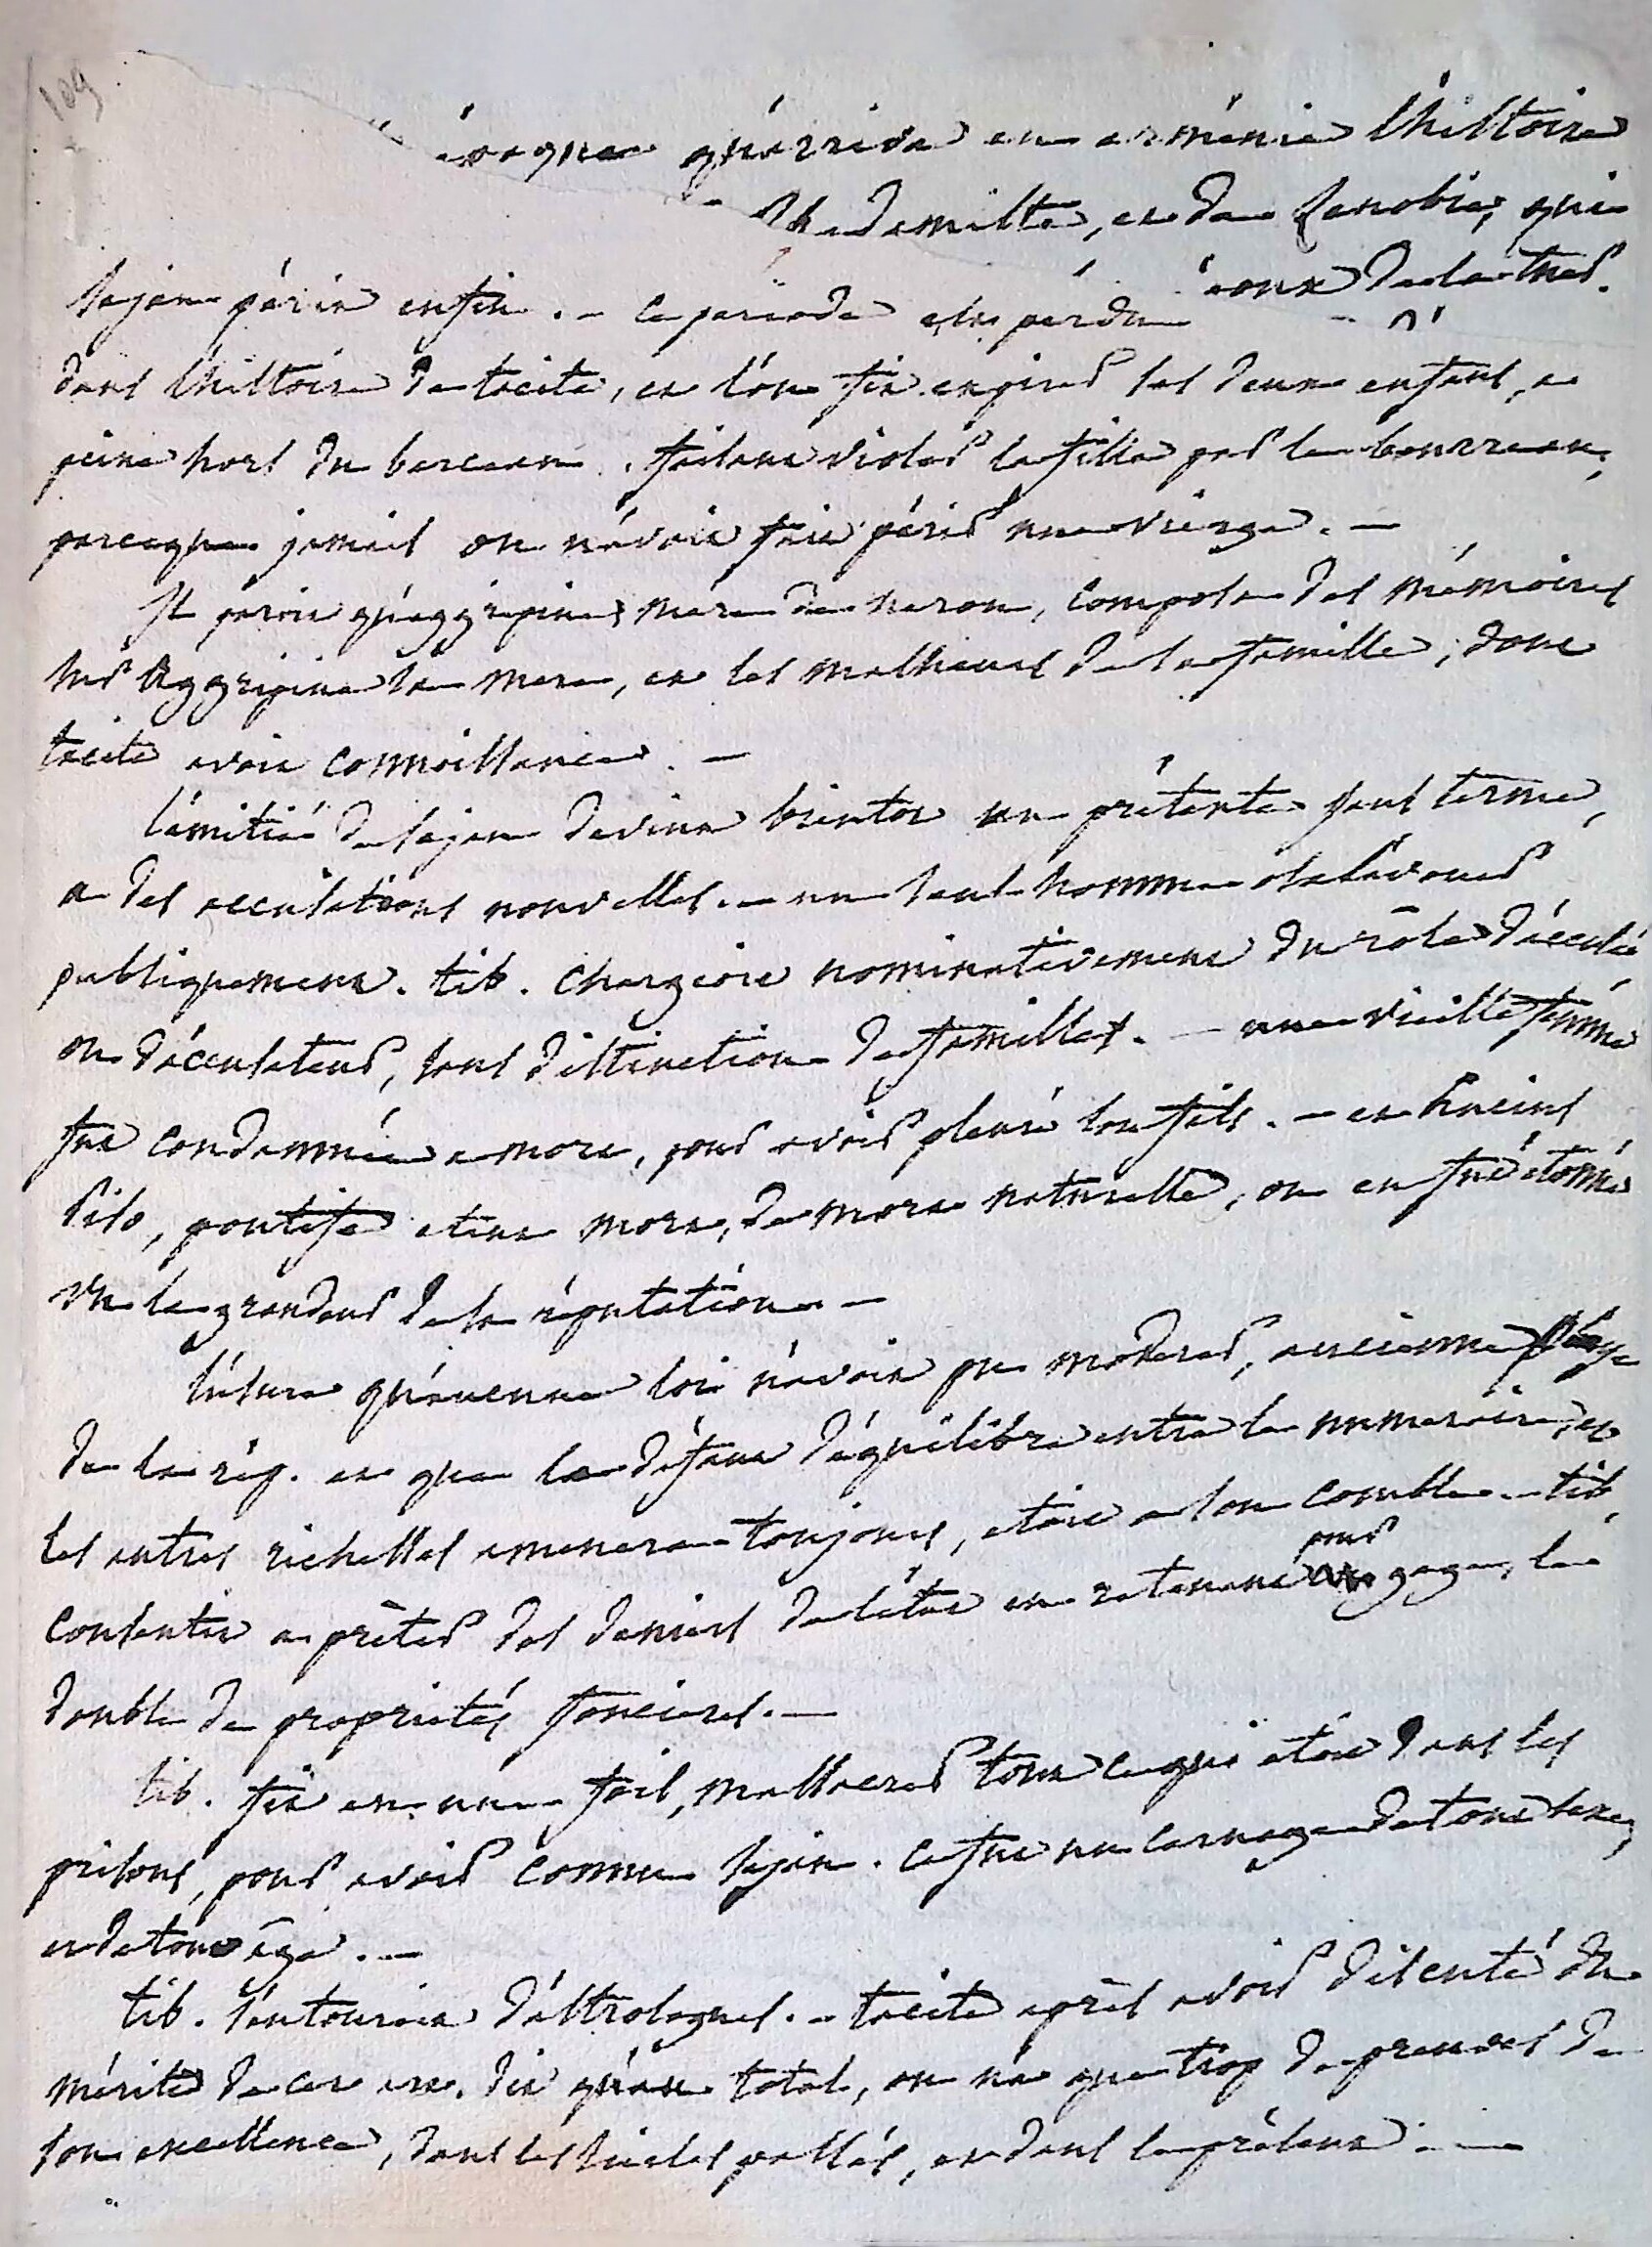 109
époque qu'arriva en arménie l'histoire
Rhadamiste, et de Zenobie, qui
Sejan périt enfin. – ce periode est perdu
dans l'histoire de tacite, et l'on fit expirer ses deux enfans, a
peine hors du berceau. faisant violer la fille par le bourreau,
parceque jamais on n'avoit fait périr une vierge. –
Il paroit qu'aggripine, mere de neron, composa des mémoires
sur Aggripine sa mere, et les malheurs de sa famille, dont
tacite avoit connoissance. –
L'amitié de sejan devint bientot un prétexte sans terme,
a des accusations nouvelles. – un seul homme osa l'avouer
publiquement. tib. chargeoit nominativement du rôle d'accusé
ou d'accusateur, sans distinction de familles. – une vieille femme
fut condamnée a mort, pour avoir pleuré son fils. – et Lucius
Piso, pontife etant mort, de mort naturelle, on en fut étonné
vu la grandeur de sa réputation. –
L'usure qu'aucune loi n'avoit pu moderer, ancienne
de la rép. et que le défaut d'équilibre entre le numeraire, et
les autres richesses amenera toujours, etoit a son comble. – tib.
consentit a prêter des deniers de l'état en retenant pour gage, le
double de propriétés foncieres. –
tib. fit en une fois, massacrer tout ce qui etoit dans les
prisons, pour avoir connu sejan. ce fut un carnage de tout sexe,
et de tout age. –
tib. s'entouroit d'astrologues. – tacite après avoir discuté du
mérite de cet art. dit qu'au total, on n'a que trop de preuves de
son excellence, dans les siecles passés, et dans le présent. –